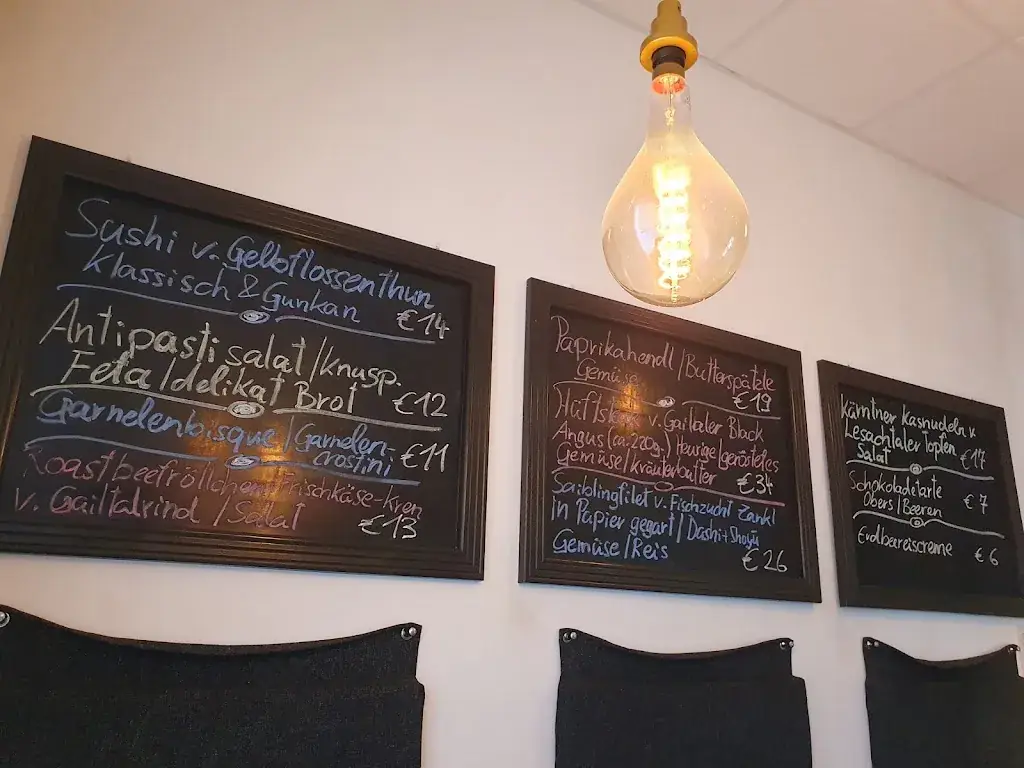 Sushi v. Gelbflossenthun
Klassisch & Gunkan
€14
Antipasti salat / Knusp.
Feta / delikat Brot €12
Garnelenbisque / Garnelen-
crostini €11
Roastbeefröllchen Frischkäse-Kren
v. Gailtalrind / Salat €13
Paprikahendl / Butterspätzle
Gemüse €19
Hüftsteak v. Gailtaler Black
Angus (ca. 220g.) Heurige geröstetes
Gemüse / Kräuterbutter €34
Saiblingfilet v. Fischzucht Zankl
in Papier gegart / Dashi + Shoyu
Gemüse / Reis €26
Kärntner Kasnudeln v.
Lesachtaler Topfen
Salat €17
Schokoladetarte
Obers / Beeren €7
Erdbeereiscreme €6